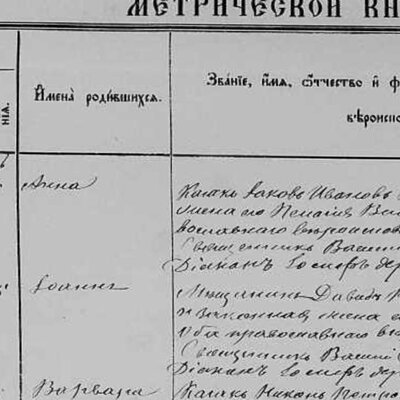 МЕТРИЧЕСКОЙ КН
Имена родившихся.
Званіе, имя, отчество и ф
вѣроиспо
нія.
Анна
Казакъ Іаковъ Ивановъ
жена его Пелагія Ва
вославнаго вѣроиспов
Священникъ Васил
Діаконъ Іосифъ
Іоаннъ
Мѣщанинъ Давидъ
и законная жена е
оба православнаго в
Священникъ Василій
Діаконъ Іосифъ
Варвара
Казакъ Никонъ Петро